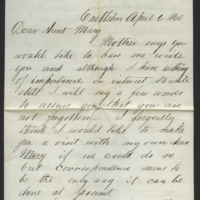 April 6 1860
Dear Aunt Mary
Mother says you
would like to have me write
you and although I have nothing
of importance or interest to write
still I will say a few words
to assure you that you are
not forgotten. I frequently
think I would like to make
you a visit with my own dear
Mary if we could do so
but correspondence seems to
be the only way it can be
done at present